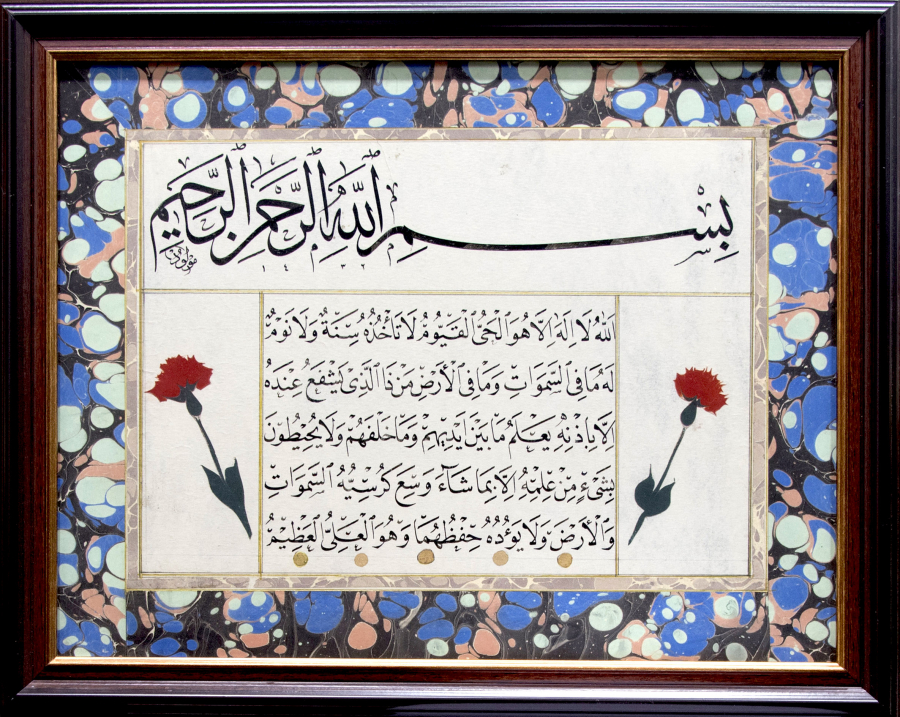 بِسْمِ اللهِ الرَّحْمٰنِ الرَّحِيمِ
١٤٣٢
اَللهُ لَا اِلٰهَ اِلَّا هُوَ الْحَىُّ الْقَيُّومُ لَا تَأْخُذُهُ سِنَةٌ وَلَا نَوْمٌ
لَهُ مَا فِى السَّمٰوَاتِ وَمَا فِى الْاَرْضِ مَنْ ذَا الَّذِى يَشْفَعُ عِنْدَهُ
اِلَّا بِاِذْنِهِ يَعْلَمُ مَا بَيْنَ اَيْدِيهِمْ وَمَا خَلْفَهُمْ وَلَا يُحِيطُونَ
بِشَىْءٍ مِنْ عِلْمِهِ اِلَّا بِمَا شَاۤءَ وَسِعَ كُرْسِيُّهُ السَّمٰوَاتِ
وَالْاَرْضَ وَلَا يَؤُدُهُ حِفْظُهُمَا وَهُوَ الْعَلِىُّ الْعَظِيمُ